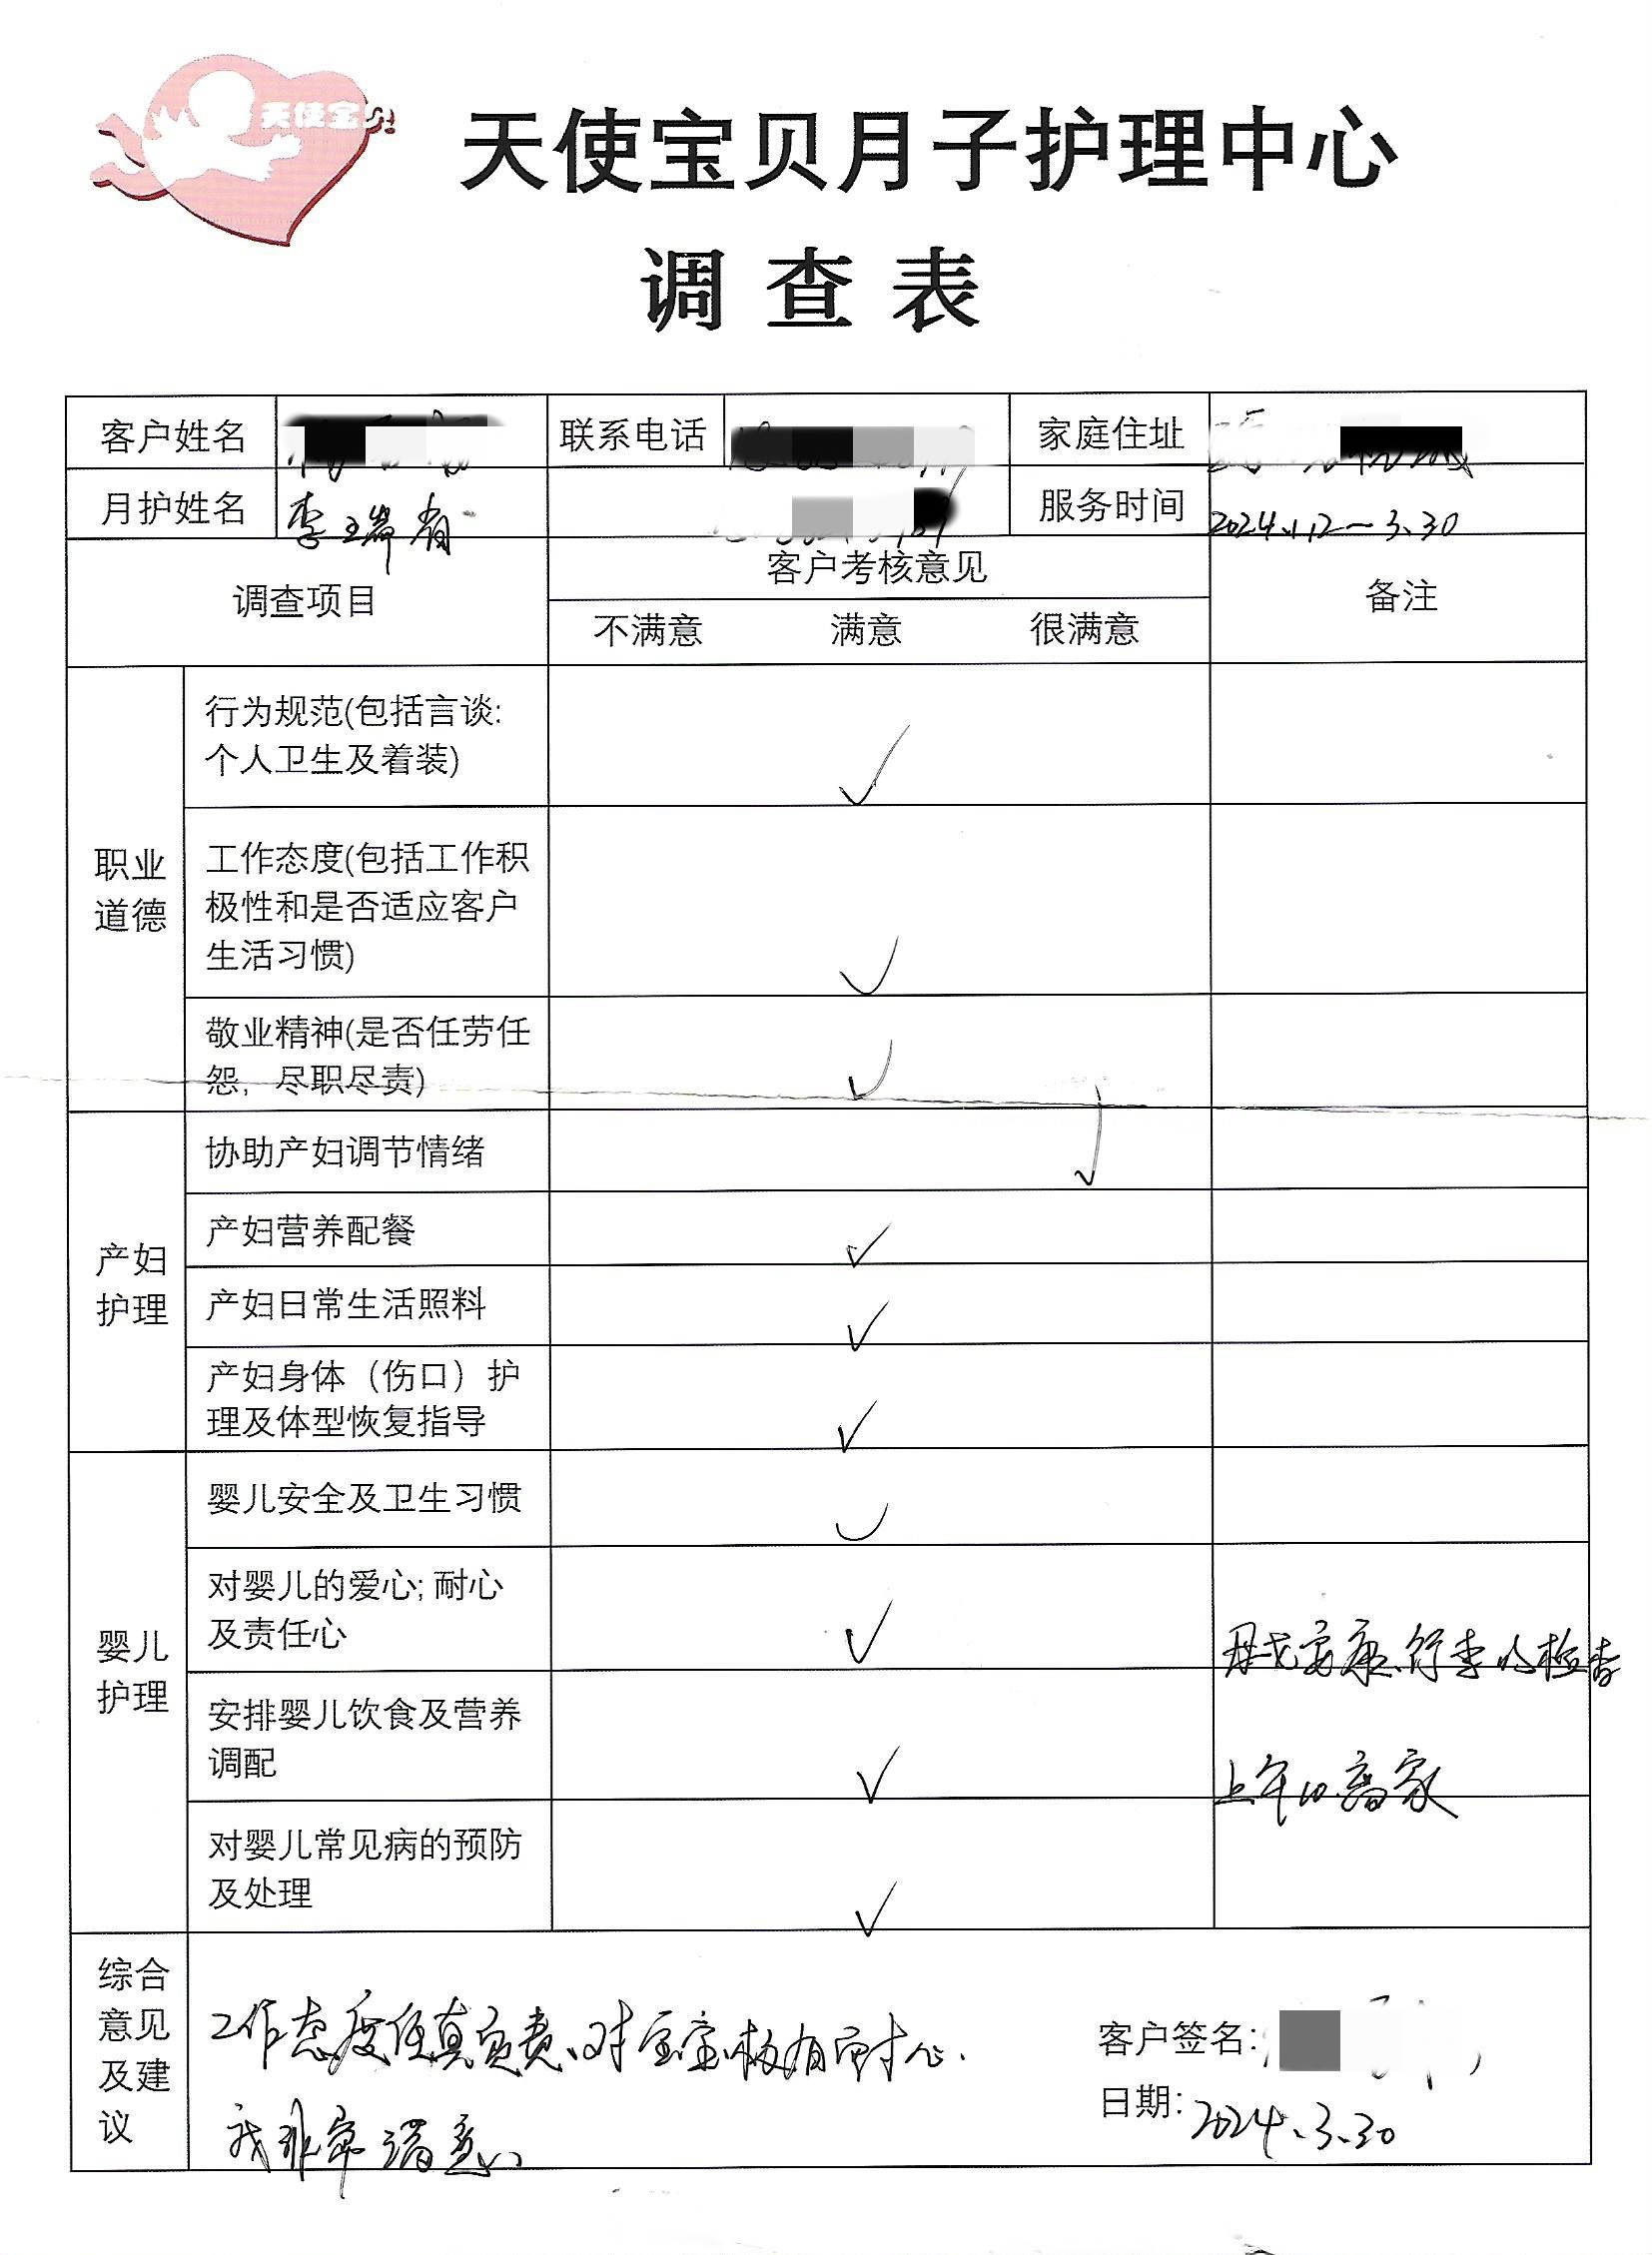 天使宝贝
天使宝贝月子护理中心
调查表
客户姓名 联系电话 家庭住址
月护姓名 李瑞 服务时间 2024.1.12—3.30
调查项目 客户考核意见 备注
不满意 满意 很满意
职业
道德
行为规范(包括言谈:
个人卫生及着装)
✓
工作态度(包括工作积
极性和是否适应客户
生活习惯)
✓
敬业精神(是否任劳任
怨，尽职尽责)
✓
产妇
护理
协助产妇调节情绪 ✓
产妇营养配餐 ✓
产妇日常生活照料 ✓
产妇身体（伤口）护
理及体型恢复指导
✓
婴儿
护理
婴儿安全及卫生习惯 ✓
对婴儿的爱心; 耐心
及责任心
✓
母婴安康.行李以检查
安排婴儿饮食及营养
调配
✓
上午10.离家
对婴儿常见病的预防
及处理
✓
综合
意见
及建
议
工作态度认真负责、对宝宝极有耐心.
我非常满意
客户签名:
日期: 2024.3.30